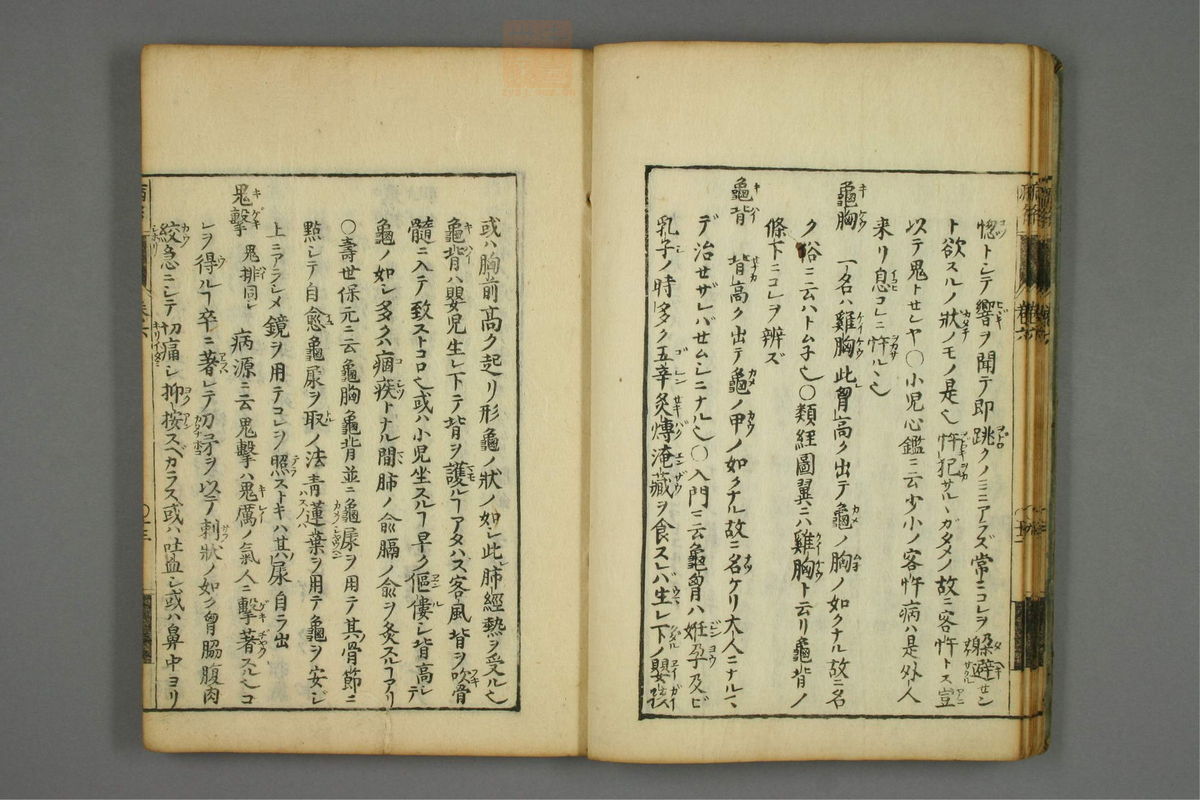 惚トシテ響ヲ聞テ即跳クノミニアラズ常ニコレヲ躱避セン
ト欲スルノ狀ノモノ是也忤犯サルヽガタメノ故ニ客忤トス豈
以テ鬼トセンヤ〇小児心鑑ニ云少小ノ客忤病ハ是外人
来リ息コレニ忤ル也
龜胸 一名ハ雞胸此胷高ク出テ龜ノ胸ノ如クナル故ニ名
ク俗ニ云ハトム子也〇類経圖翼ニハ雞胸ト云リ龜背ノ
條下ニコレヲ辨ズ
龜背 背高ク出テ龜ノ甲ノ如クナル故ニ名ケリ大人ニナルマ
デ治セザレバセムシニナル也〇入門ニ云龜胷ハ姙孕及ビ
乳子ノ時多ク五辛炙煿淹藏ヲ食スレバ生レ下ノ嬰孩
或ハ胸前高ク起リ形龜ノ狀ノ如シ此肺經熱ヲ受ル也
龜背ハ嬰児生レ下テ背ヲ護ルヿアタハズ客風背ヲ吹骨
髓ニ入テ致ストコロ也或ハ小児坐スルヿ早ク傴僂シ背高シ
龜ノ如シ多クハ痼疾トナル間肺ノ俞膈ノ俞ヲ灸スルヿアリ
〇壽世保元ニ云龜胸龜背並ニ龜尿ヲ用テ其骨節ニ
點シテ自愈龜尿ヲ取ノ法青蓮葉ヲ用テ龜ヲ安ジ
上ニアラシメ鏡ヲ用テコレヲ照ストキハ其尿自ラ出
鬼擊 鬼排同シ 病源ニ云鬼擊ハ鬼厲ノ氣人ニ擊著スル也コ
レヲ得ルヿ卒ニ著レテ刀矛ヲ以テ刺狀ノ如ク胷脇腹肉
絞急ニシテ切痛シ抑按スベカラス或ハ吐血シ或ハ鼻中ヨリ